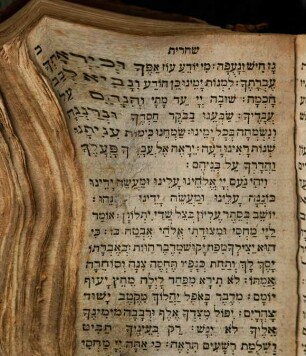 שחרית
גז חיש ונעפה: מי יודע עוז אפך וכיראתך
עברתך: למנות ימינו כן הודע ונביא לבב
חכמה: שובה יי עד מתי והנחם על
עבדיך: שבענו בבקר חסדך ונרננה
ונשמחה בכל ימינו: שמחנו כימות עניתנו
שנות ראינו רעה: יראה אל עבדיך פעלך
והדרך על בניהם:
ויהי נעם יי אלהינו עלינו ומעשה ידינו
כוננה עלינו ומעשה ידינו
יושב בסתר עליון בצל שדי יתלונן: אומר
ליי מחסי ומצודתי אלהי אבטח בו: כי
הוא יצילך מפח יקוש מדבר הוות: באברתו
יסך לך ותחת כנפיו תחסה צנה וסוחרה
אמתו: לא תירא מפחד לילה מחץ יעוף
יומם: מדבר באפל יהלוך מקטב ישוד
צהרים: יפול מצדך אלף ורבבה מימינך
אליך לא יגש: רק בעיניך תביט
ושלמת רשעים תראה: כי אתה יי מחסי